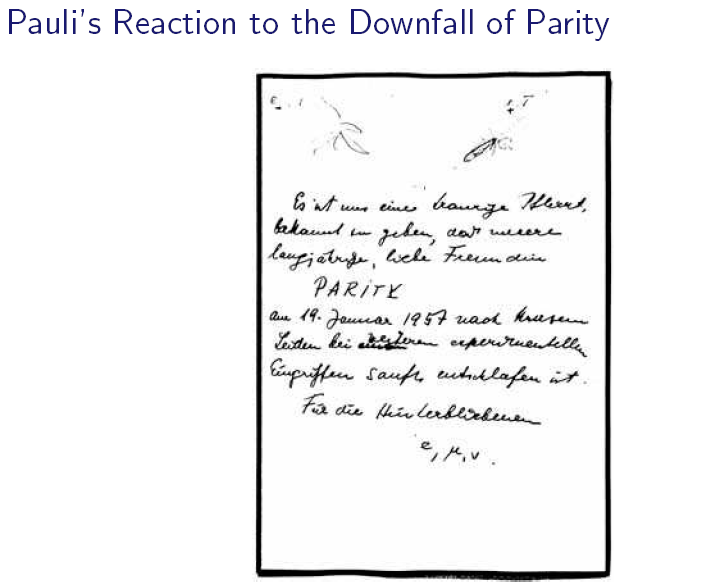 Pauli's Reaction to the Downfall of Parity
Es ist uns eine traurige Pflicht,
bekannt zu geben, daß unsere
langjährige, liebe Freundin
PARITY
am 19. Januar 1957 nach kurzem
Leiden bei weiteren experimentellen
Eingriffen sanft entschlafen ist.
Für die Hinterbliebenen
e, μ, ν.